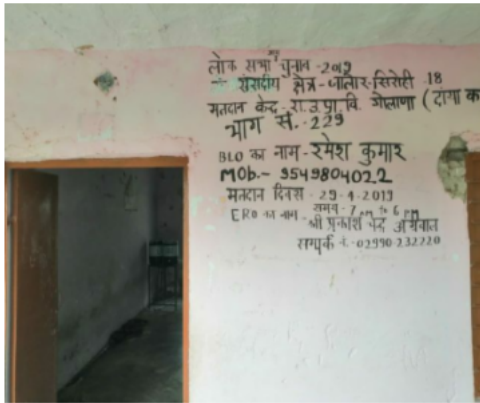 लोक सभा चुनाव - 2019
संसदीय क्षेत्र - जालोर-सिरोही 18
मतदान केन्द्र - रा.उ.प्रा.वि. गोलाणा (दांया क
भाग सं. - 229
BLO का नाम - रमेश कुमार
MOb. - 9549804022
मतदान दिवस - 29-4-2019
समय - 7 am to 6 pm
ERO का नाम - श्री प्रकाश चन्द्र अग्रवाल
सम्पर्क नं. - 02990-232220